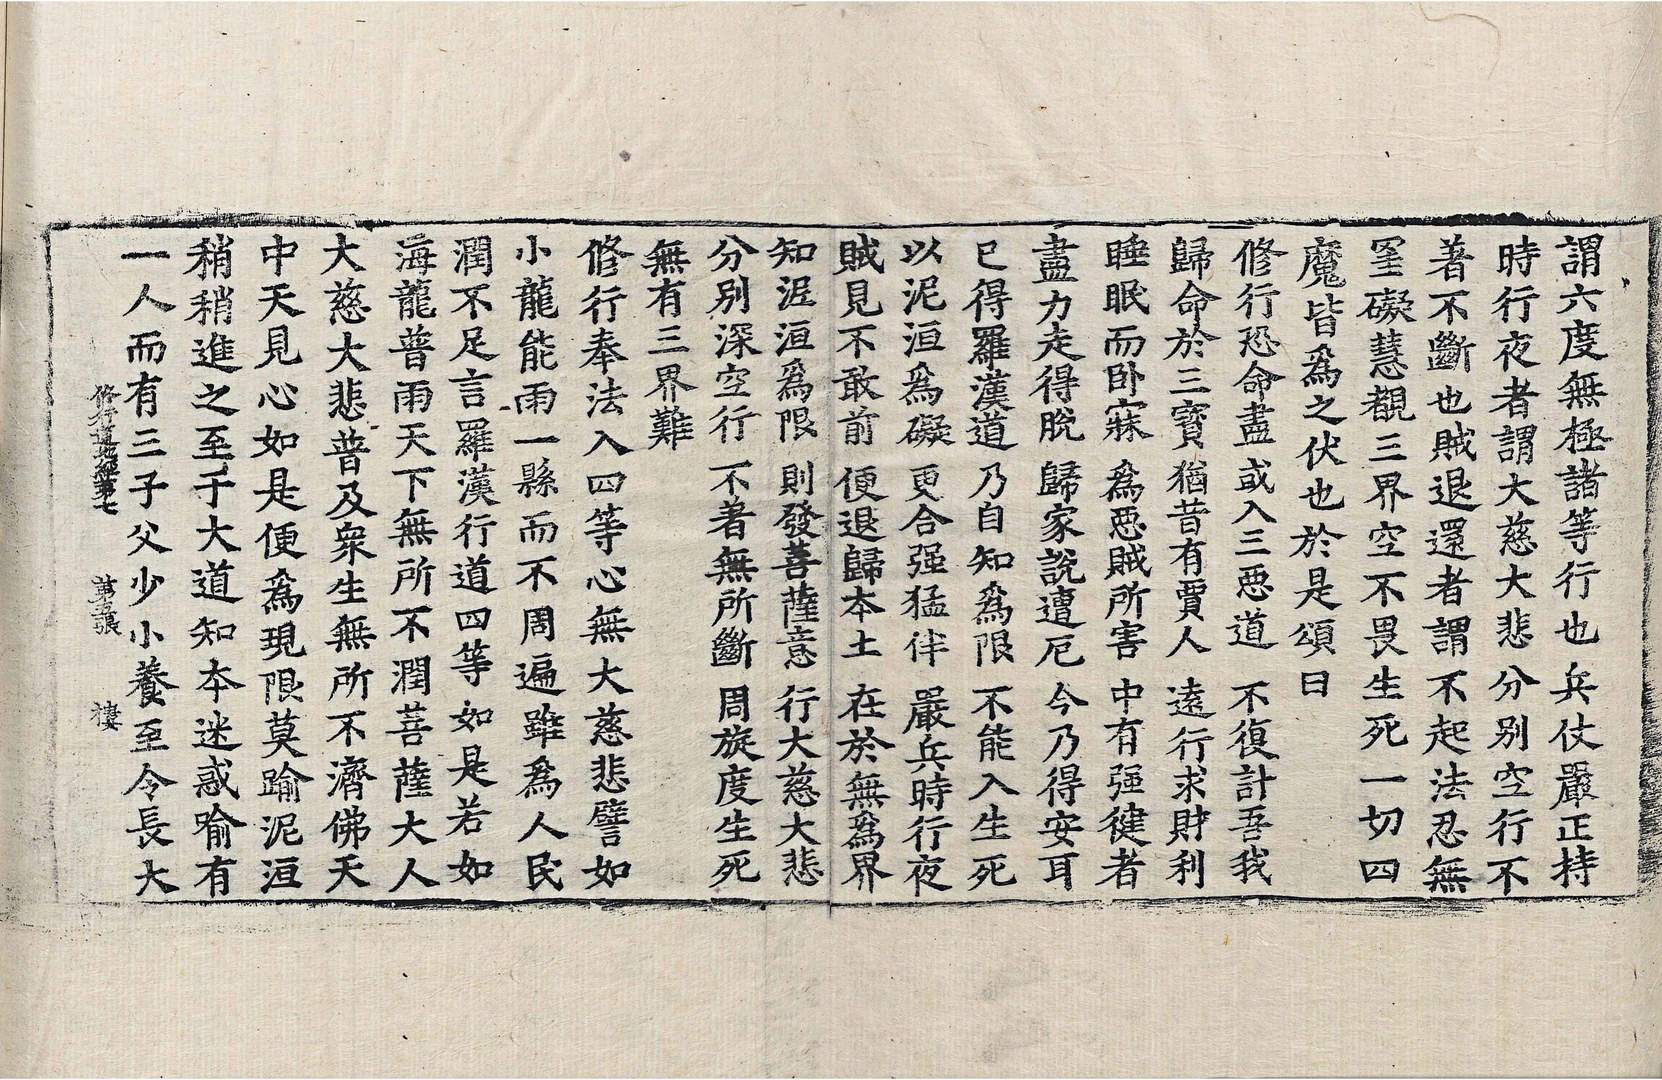 謂六度無極諸等行也兵仗嚴正持
時行夜者謂大慈大悲分別空行不
著不斷也賊退還者謂不起法忍無
罣礙慧觀三界空不畏生死一切四
魔皆爲之伏也於是頌曰
修行恐命盡或入三惡道 不復計吾我
歸命於三寶 猶昔有賈人 遠行求財利
睡眠而卧寐 爲惡賊所害 中有强健者
盡力走得脫 歸家說遭厄 今乃得安耳
已得羅漢道 乃自知爲限 不能入生死
以泥洹爲礙 更合强猛伴 嚴兵時行夜
賊見不敢前 便退歸本土 在於無爲界
知泥洹爲限 則發菩薩意 行大慈大悲
分別深空行 不著無所斷 周旋度生死
無有三界難
修行奉法入四等心無大慈悲譬如
小龍能雨一縣而不周遍雖爲人民
潤不足言羅漢行道四等如是若如
海龍普雨天下無所不潤菩薩大人
大慈大悲普及衆生無所不濟佛天
中天見心如是便爲現限莫踰泥洹
稍稍進之至于大道知本迷惑喻有
一人而有三子父少小養至令長大
修行道地經第七 第五張 棲